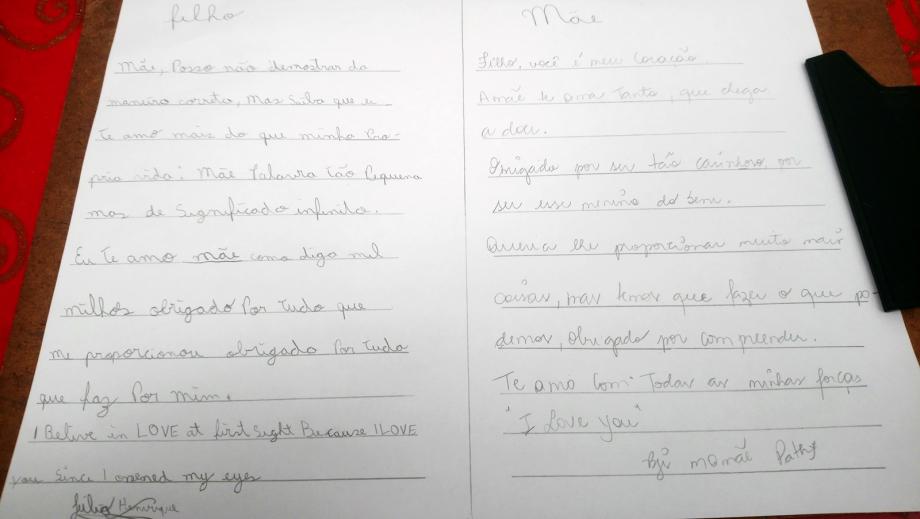 filho
Mãe, Posso não demostrar da
maneira correta, Mas saiba que eu
te amo mais do que minha Pro-
pria vida; Mãe Palavra tão Pequena
mas de Significado infinito.
Eu te amo mãe como digo mil
milhões obrigado Por tudo que
me proporcionou obrigado Por tudo
que faz Por mim.
I Belive in LOVE at first sight Because I LOVE
you since I opened my eyes
Júlio Henrique
Mãe
Filho, você é meu Coração.
A mãe te ama tanto, que chega
a doer.
Obrigada por ser tão carinhoso, por
ser esse menino do bem.
Queria lhe proporcionar muito mais
coisas, mas temos que fazer o que po-
demos, obrigado por compreender.
Te amo com todas as minhas forças
"I Love you"
Bji mamãe Pathy